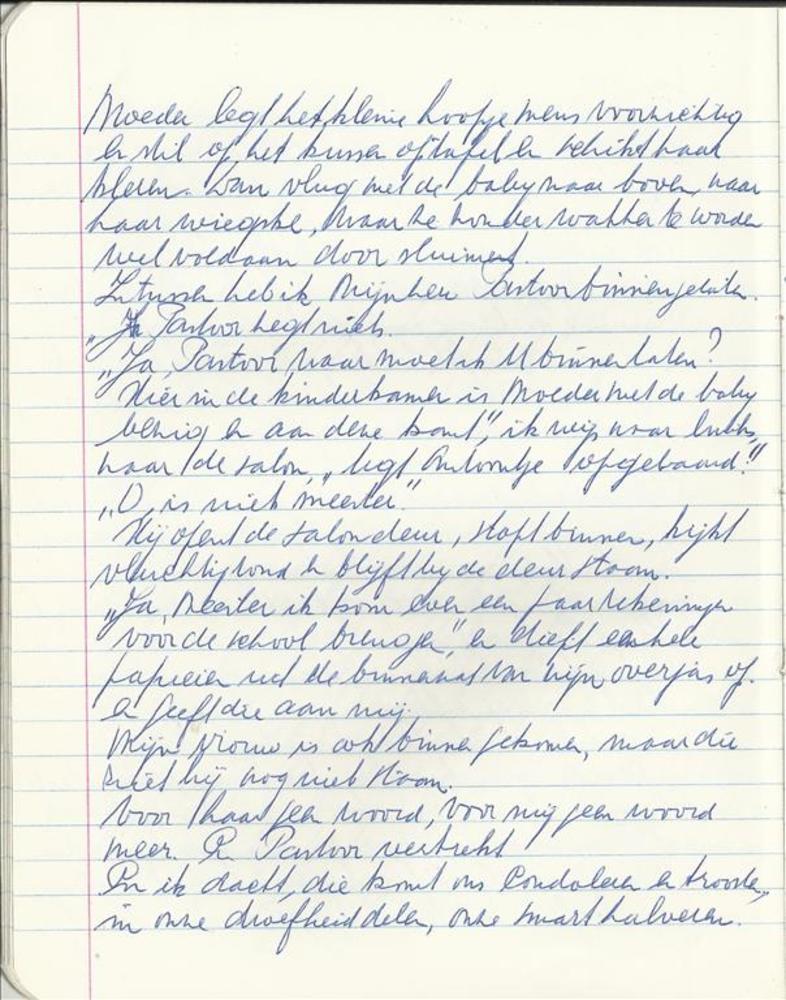 Moeder legt het kleine hoopje mens voorzichtig
en stil op het kussen op tafel en schikt haar
kleren. Dan vlug met de baby naar boven, naar
haar wiegske, waar ze zonder wakker te worden
wel voldaan door sluimert.
Intussen heb ik Mijnheer Pastoor binnengelaten.
„Ja Pastoor zegt niets.
„Ja, Pastoor, waar moet ik U binnen laten?
Hier in de kinderkamer is Moeder met de baby
bezig en aan deze kant", ik wijs naar links,
naar de salon, „ligt Antoontje opgebaard."
„O, is niets meester."
Hij opent de salondeur, stapt binnen, kijkt
vluchtig rond en blijft bij de deur staan.
„Ja, Meester ik kom even een paar rekeningen
voor de school brengen", en diept enkele
papieren uit de binnenzak van zijn overjas op.
en geeft die aan mij.
Mijn vrouw is ook binnen gekomen, maar die
ziet hij nog niet staan.
Voor haar geen woord, voor mij geen woord
meer. En Pastoor vertrekt
En ik dacht, die komt ons Condoleren en troosten,
in onze droefheid delen, onze smart halveren.